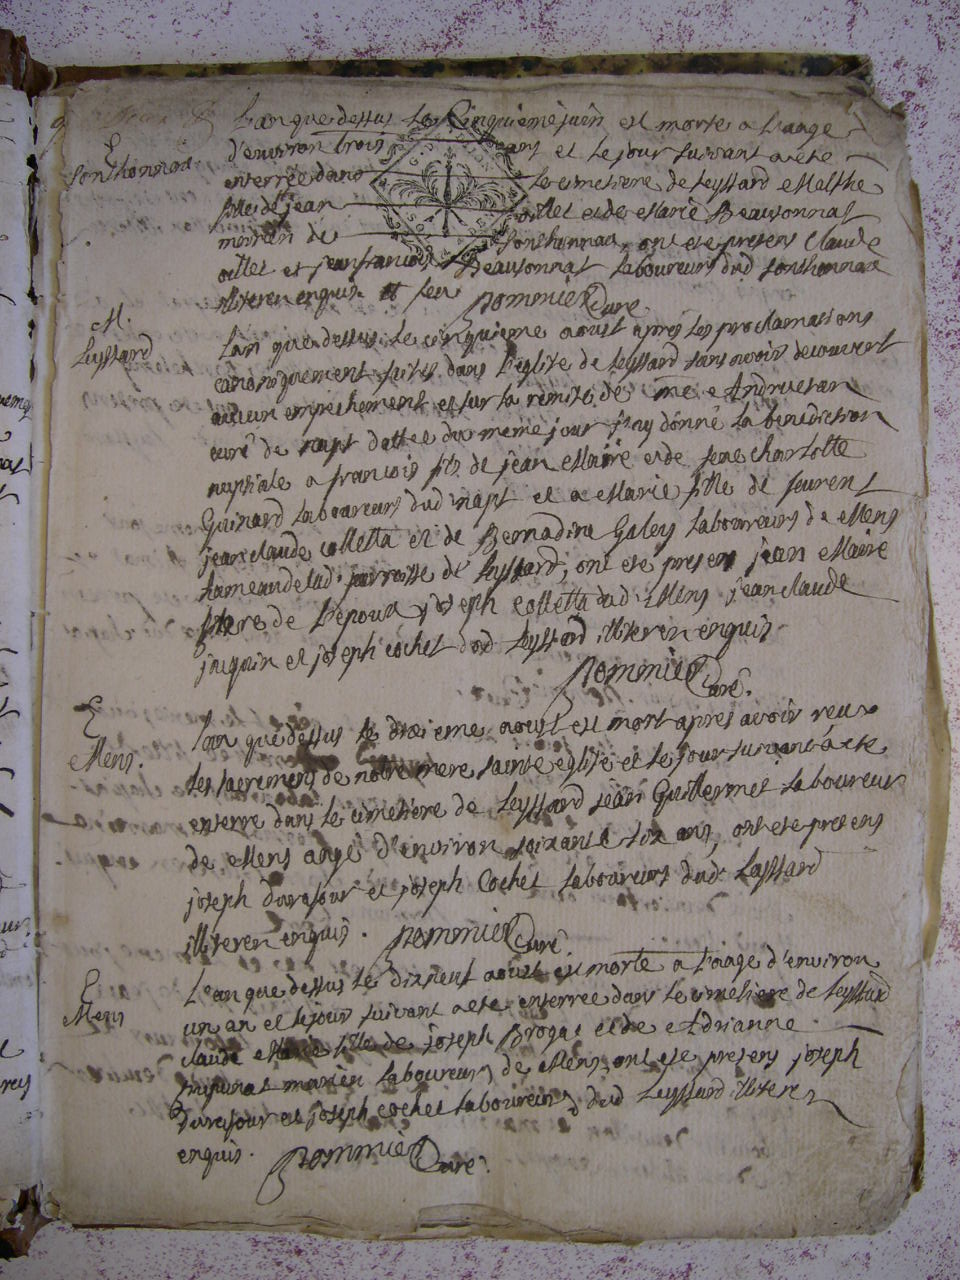 L'an que dessus le Cinquieme juin est morte a l'aage
E
Sonthonnax
d'environ trois ans et le jour suivant a été
enterrée dans le cimetiere de Leyssard
fille de jean oillet et de Marie Beausonnat
marien de Sonthonnax, ont ete presens Claude
oillet et jean francois Beausonnat laboureurs dud sonthonnax
illiteren enquis Pommier Curé
M.
Leyssard
L'an que dessus le cinquieme aoust apres les proclamations
canoniquement faites dans l'eglise de Leyssard sans avoir decouvert
aucun empechement et sur la remise de me Andruetan
curé de napt dattée du meme jour j'ay donné la benediction
nuptiale a francois fils de jean Maire et de feue charlotte
Guinard laboureurs dud napt et a Marie fille de
jean claude colletta et de Bernadine Galey laboureurs de Mens
hameau de lad. parroisse de Leyssard, ont ete presens jean Maire
frere de l'epoux joseph colletta dud Mens jean claude
jacquin et joseph cochet dud Leyssard illiteren enquis
Pommier Curé.
E
Mens.
L'an que dessus le dixieme aoust est mort apres avoir reçu
les sacremens de notre mere sainte eglise et le jour suivant a ete
enterre dans le cimetiere de Leyssard jean Guillermet laboureur
de Mens aagé d'environ soixante dix ans, ont ete presens
joseph Durafour et joseph Cochet laboureurs dud. Layssard
illiteren enquis. Pommier Curé
E
Mens
L'an que dessus le dixneuf aoust est morte a l'aage d'environ
un an et le jour suivant a ete enterrée dans le cimetiere de Leyssard
claude Marie fille de joseph Brogat et de Adrianne
marien laboureurs de Mens, ont ete presens joseph
Durafour et joseph cochet laboureurs dud Leyssard illiteren
enquis. Pommier Curé.